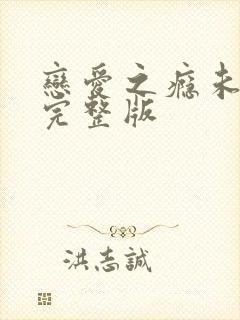 戀愛之癮未
完整版
洪志誠